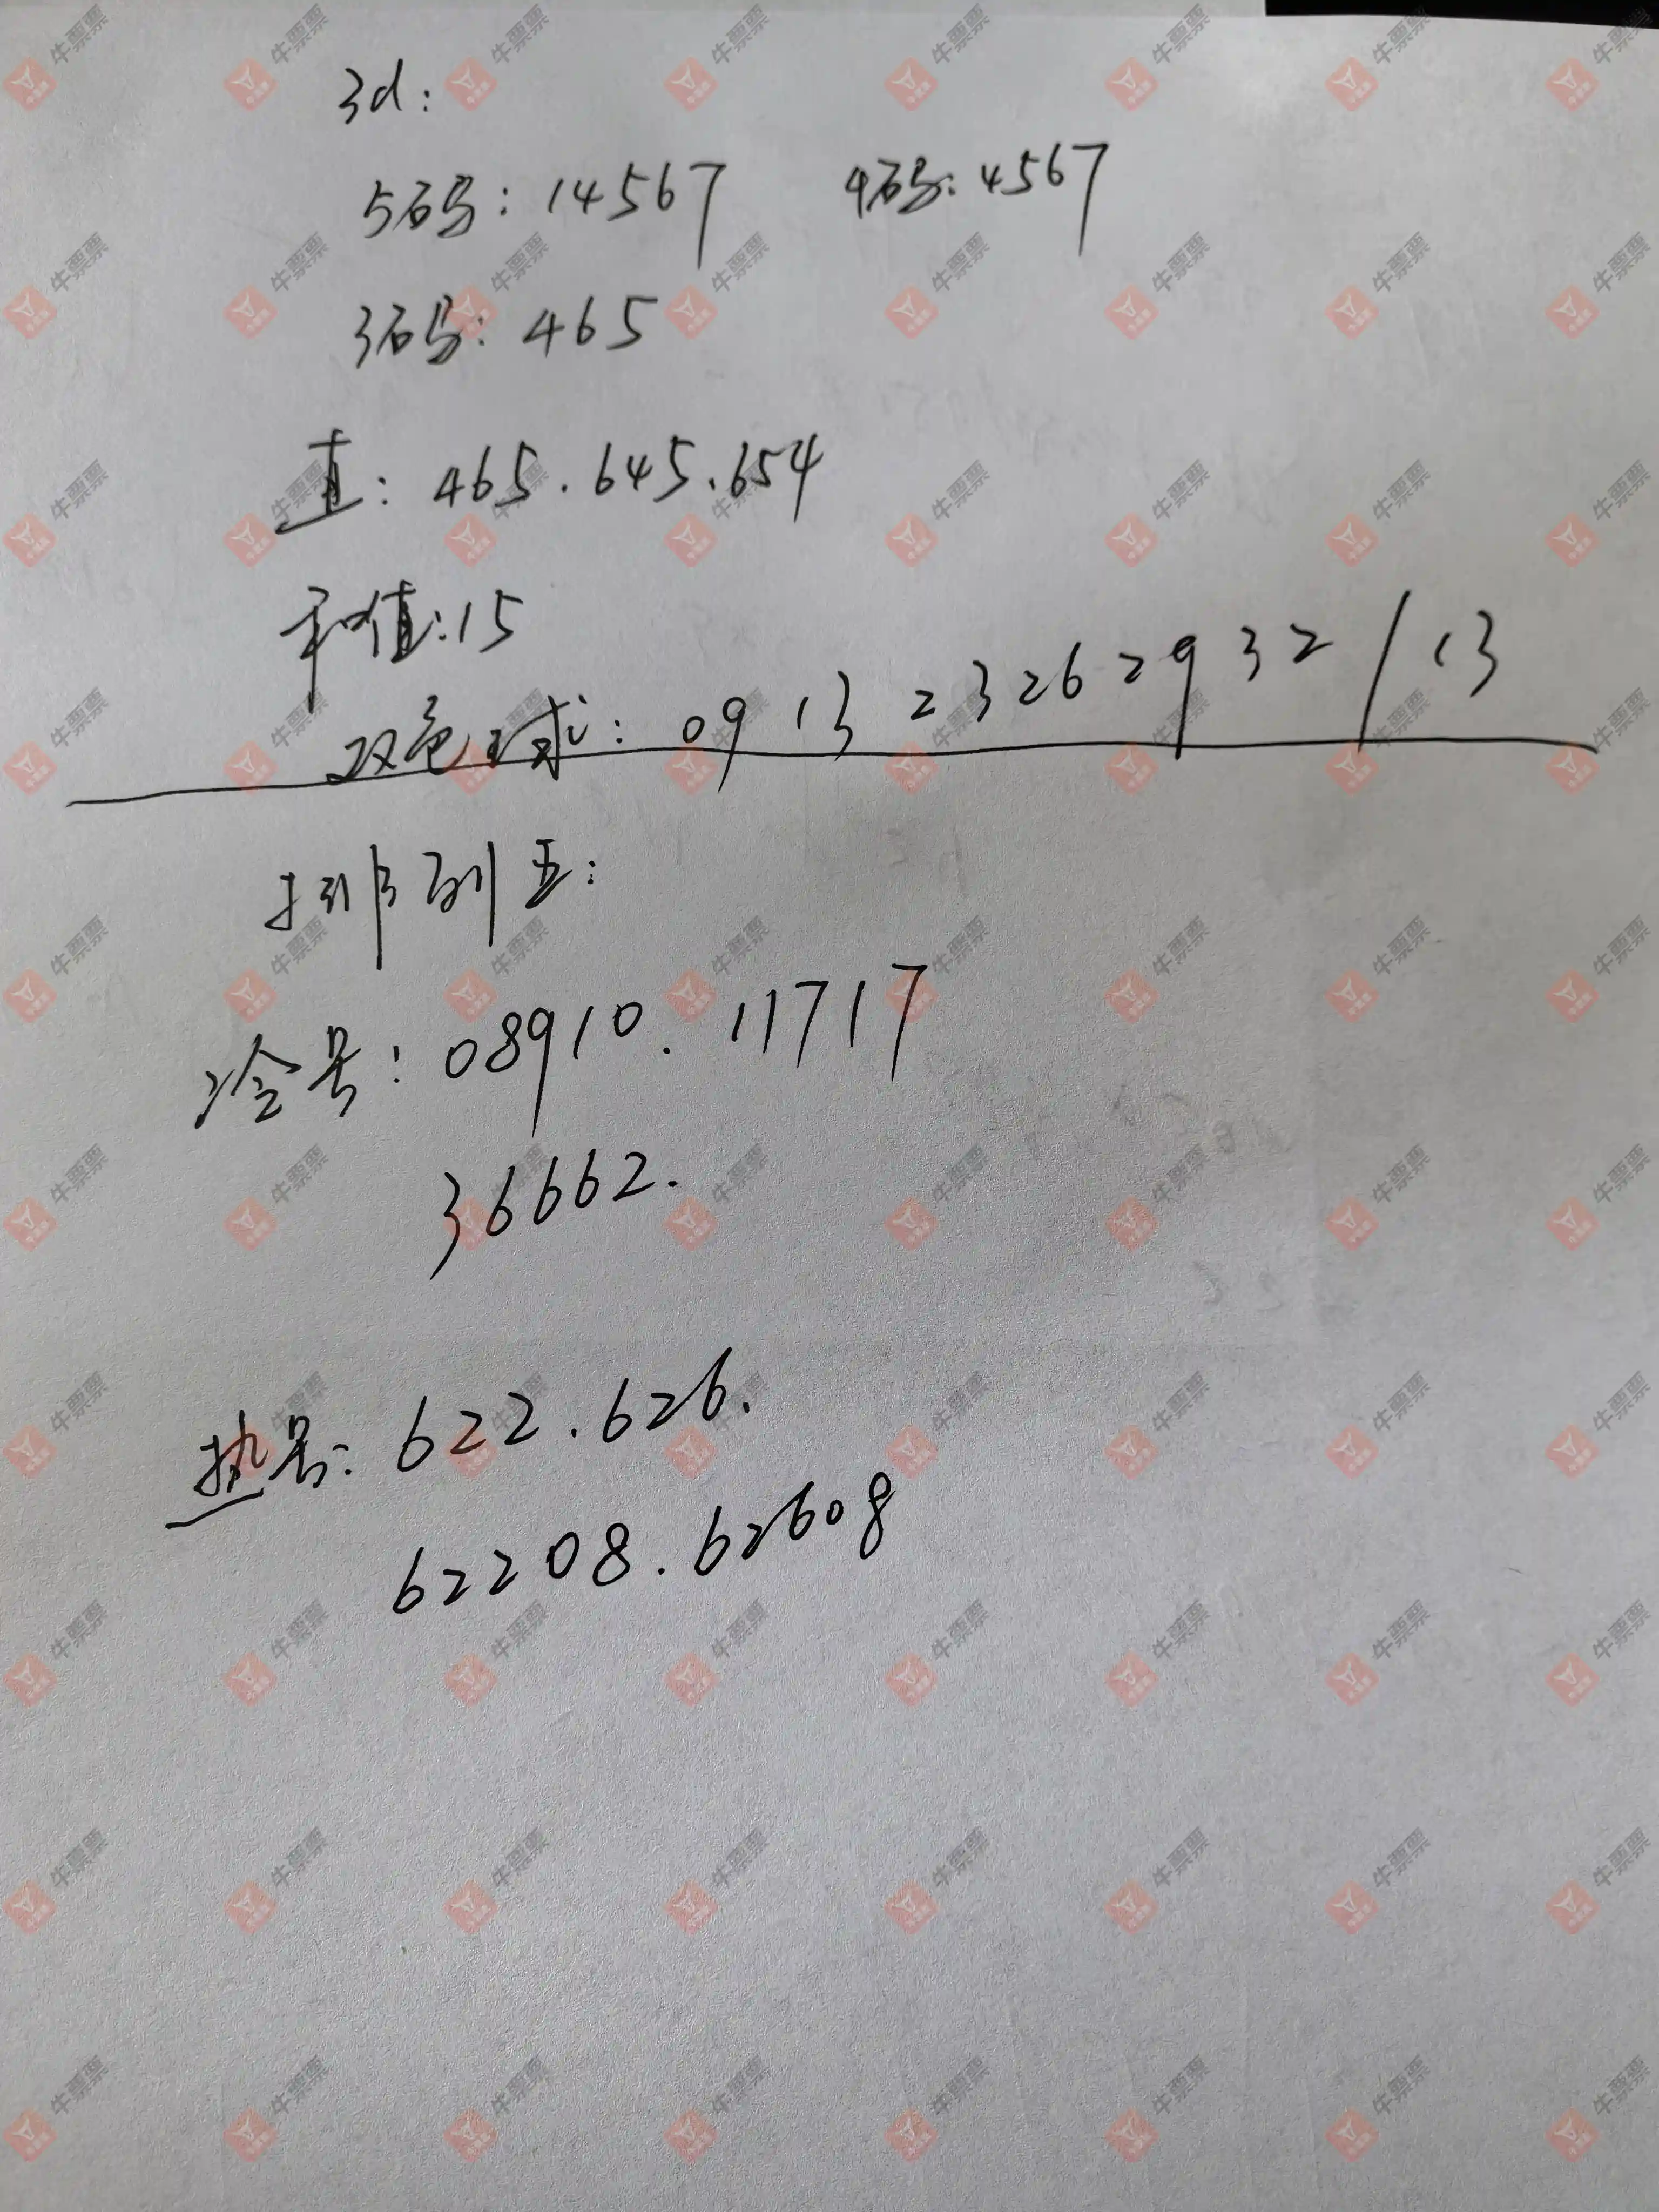 3d:
5码: 14567 4码: 4567
3码: 465
直: 465.645.654
和值:15
双色球: 09 13 23 26 29 32 / 13
排列五:
冷号: 08910. 11717
36662.
热号: 622.626.
62208.62608
牛票票